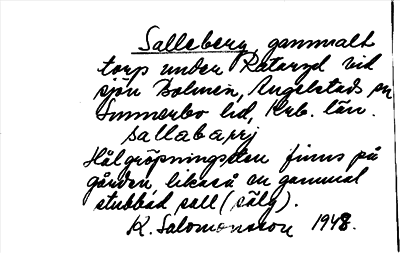 Salleberg, gammalt
torp under Rataryd vid
sjön Bolmen, Angelstads sn
Sunnerbo hd, Krb. län.
sallabarj
Hålgröpningsten finns på
gården, likaså en gammal
stubbad sall (sälg).
K. Salomonsson 1948.